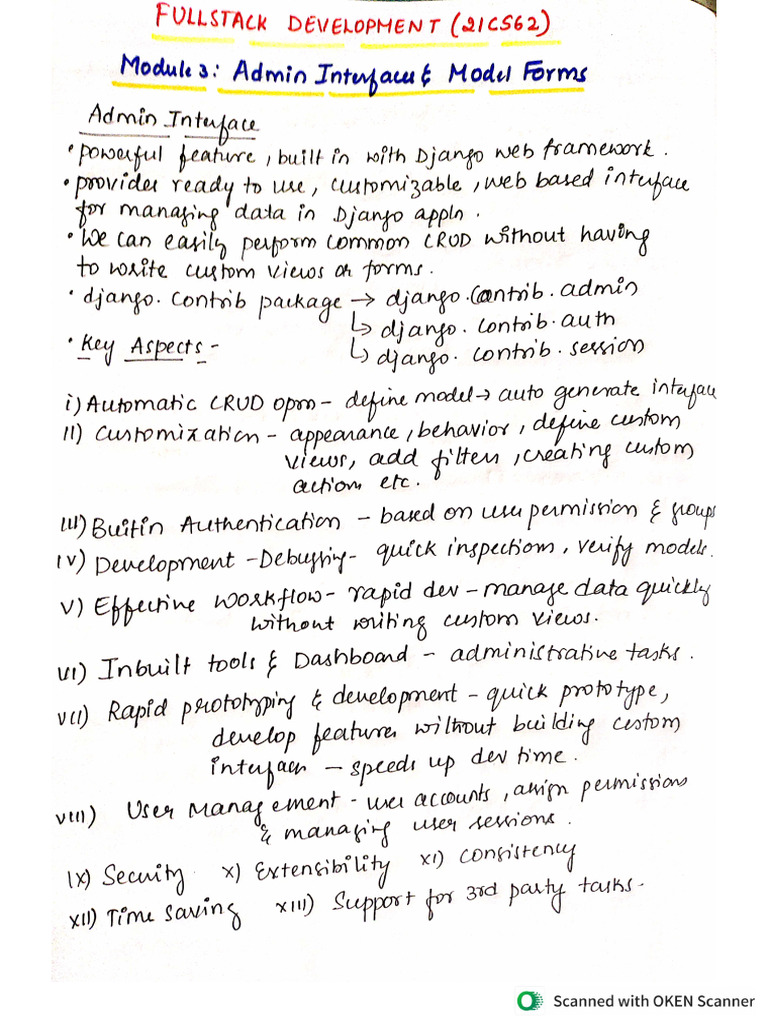 FULLSTACK DEVELOPMENT (21CS62)
Module 3: Admin Interfaces & Model Forms
Admin Interface
• powerful feature, built in with Django web framework.
• provides ready to use, customizable, web based interface
for managing data in Django appln.
• We can easily perform common CRUD without having
to write custom views or forms.
• django. contrib package → django.contrib.admin
↳ django. contrib. auth
• Key Aspects -
↳ django. contrib. session
i) Automatic CRUD oprn - define model → auto generate interface
II) Customization - appearance, behavior, define custom
views, add filters, creating custom
action etc.
III) Builtin Authentication - based on user permission & groups
IV) Development - Debugging - quick inspections, verify models.
V) Effective Workflow - rapid dev - manage data quickly
without writing custom views.
VI) Inbuilt tools & Dashboard - administrative tasks.
VII) Rapid prototyping & development - quick prototype,
develop features without building custom
interfaces - speeds up dev time.
VIII) User Management - user accounts, assign permissions
& managing user sessions.
IX) Security X) Extensibility XI) Consistency
XII) Time Saving XIII) Support for 3rd party tasks -
Scanned with OKEN Scanner